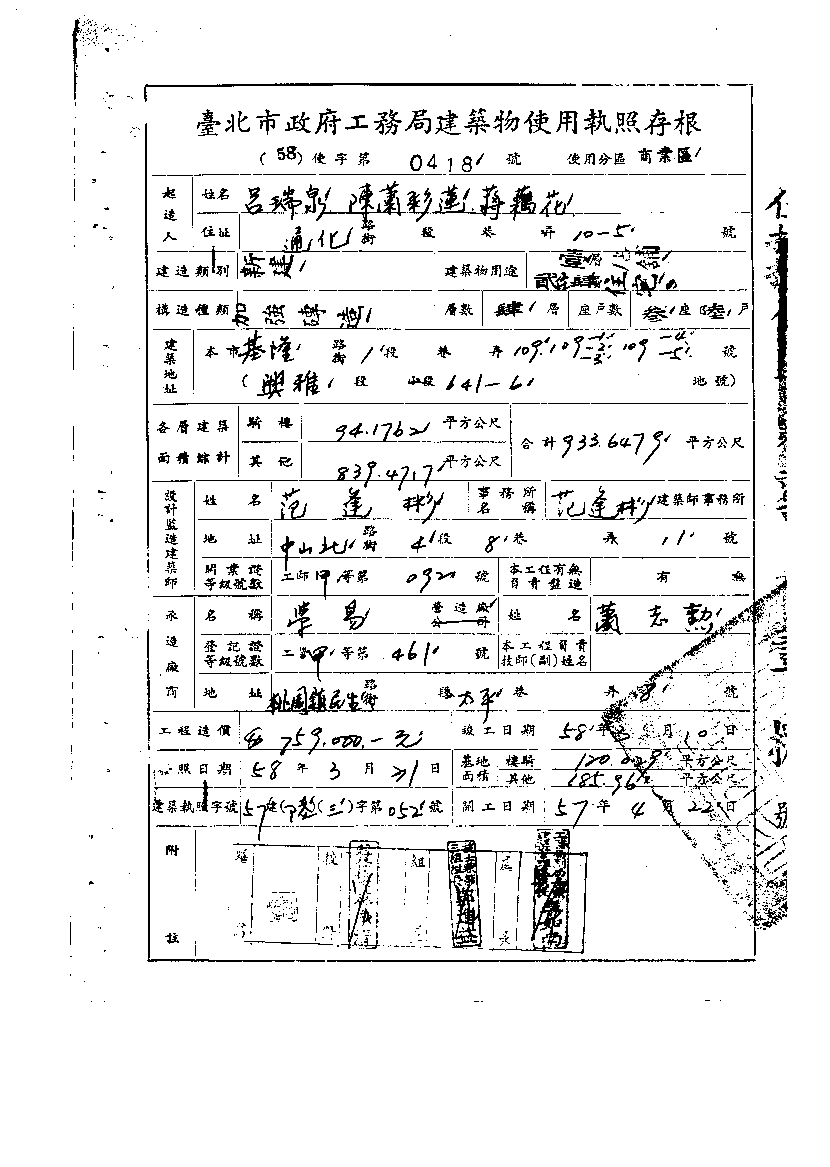 臺北市政府工務局建築物使用執照存根
(58)使字第 0418 號 使用分區 商業區
起造人 姓名 呂瑞泉 陳蕭彩蓮 蔣藕花
住址 通化 路街 段 巷 弄 10-5 號
建造類別 新建 建築物用途 壹層店舖
貳至肆住宅
構造種類 加強磚造 層數 肆 層 座戶數 叁座陸戶
建築地址 本市基隆 路街 1段 巷 弄 109.109-1-2-3.109-4-5 號
(興雅 段 小段 641-6 地號)
各層建築面積總計 騎樓 94.1762 平方公尺 合計933.6479 平方公尺
其他 839.4717 平方公尺
設計監造建築師 姓名 范逢彬 事務所名稱 范逢彬 建築師事務所
地址 中山北 路街 4段 8巷 弄 11 號
開業證等級號數 工師甲等第 092 號 本工程有無負責監造 有 無
承造廠商 名稱 榮易 營造廠公司 姓名 蕭志勳
登記證等級號數 工業甲等第 461 號 本工程負責技師(副)姓名
地址 桃園鎮民生 路街 段 太平巷 弄 8 號
工程造價 759,000.-元 竣工日期 58年3月10日
照日期 58年3月31日 基地面積 騎樓 120.029 平方公尺
其他 185.96 平方公尺
建築執照字號 57建( )(三)字第052號 開工日期 57年4月22日
附註
組
長
號